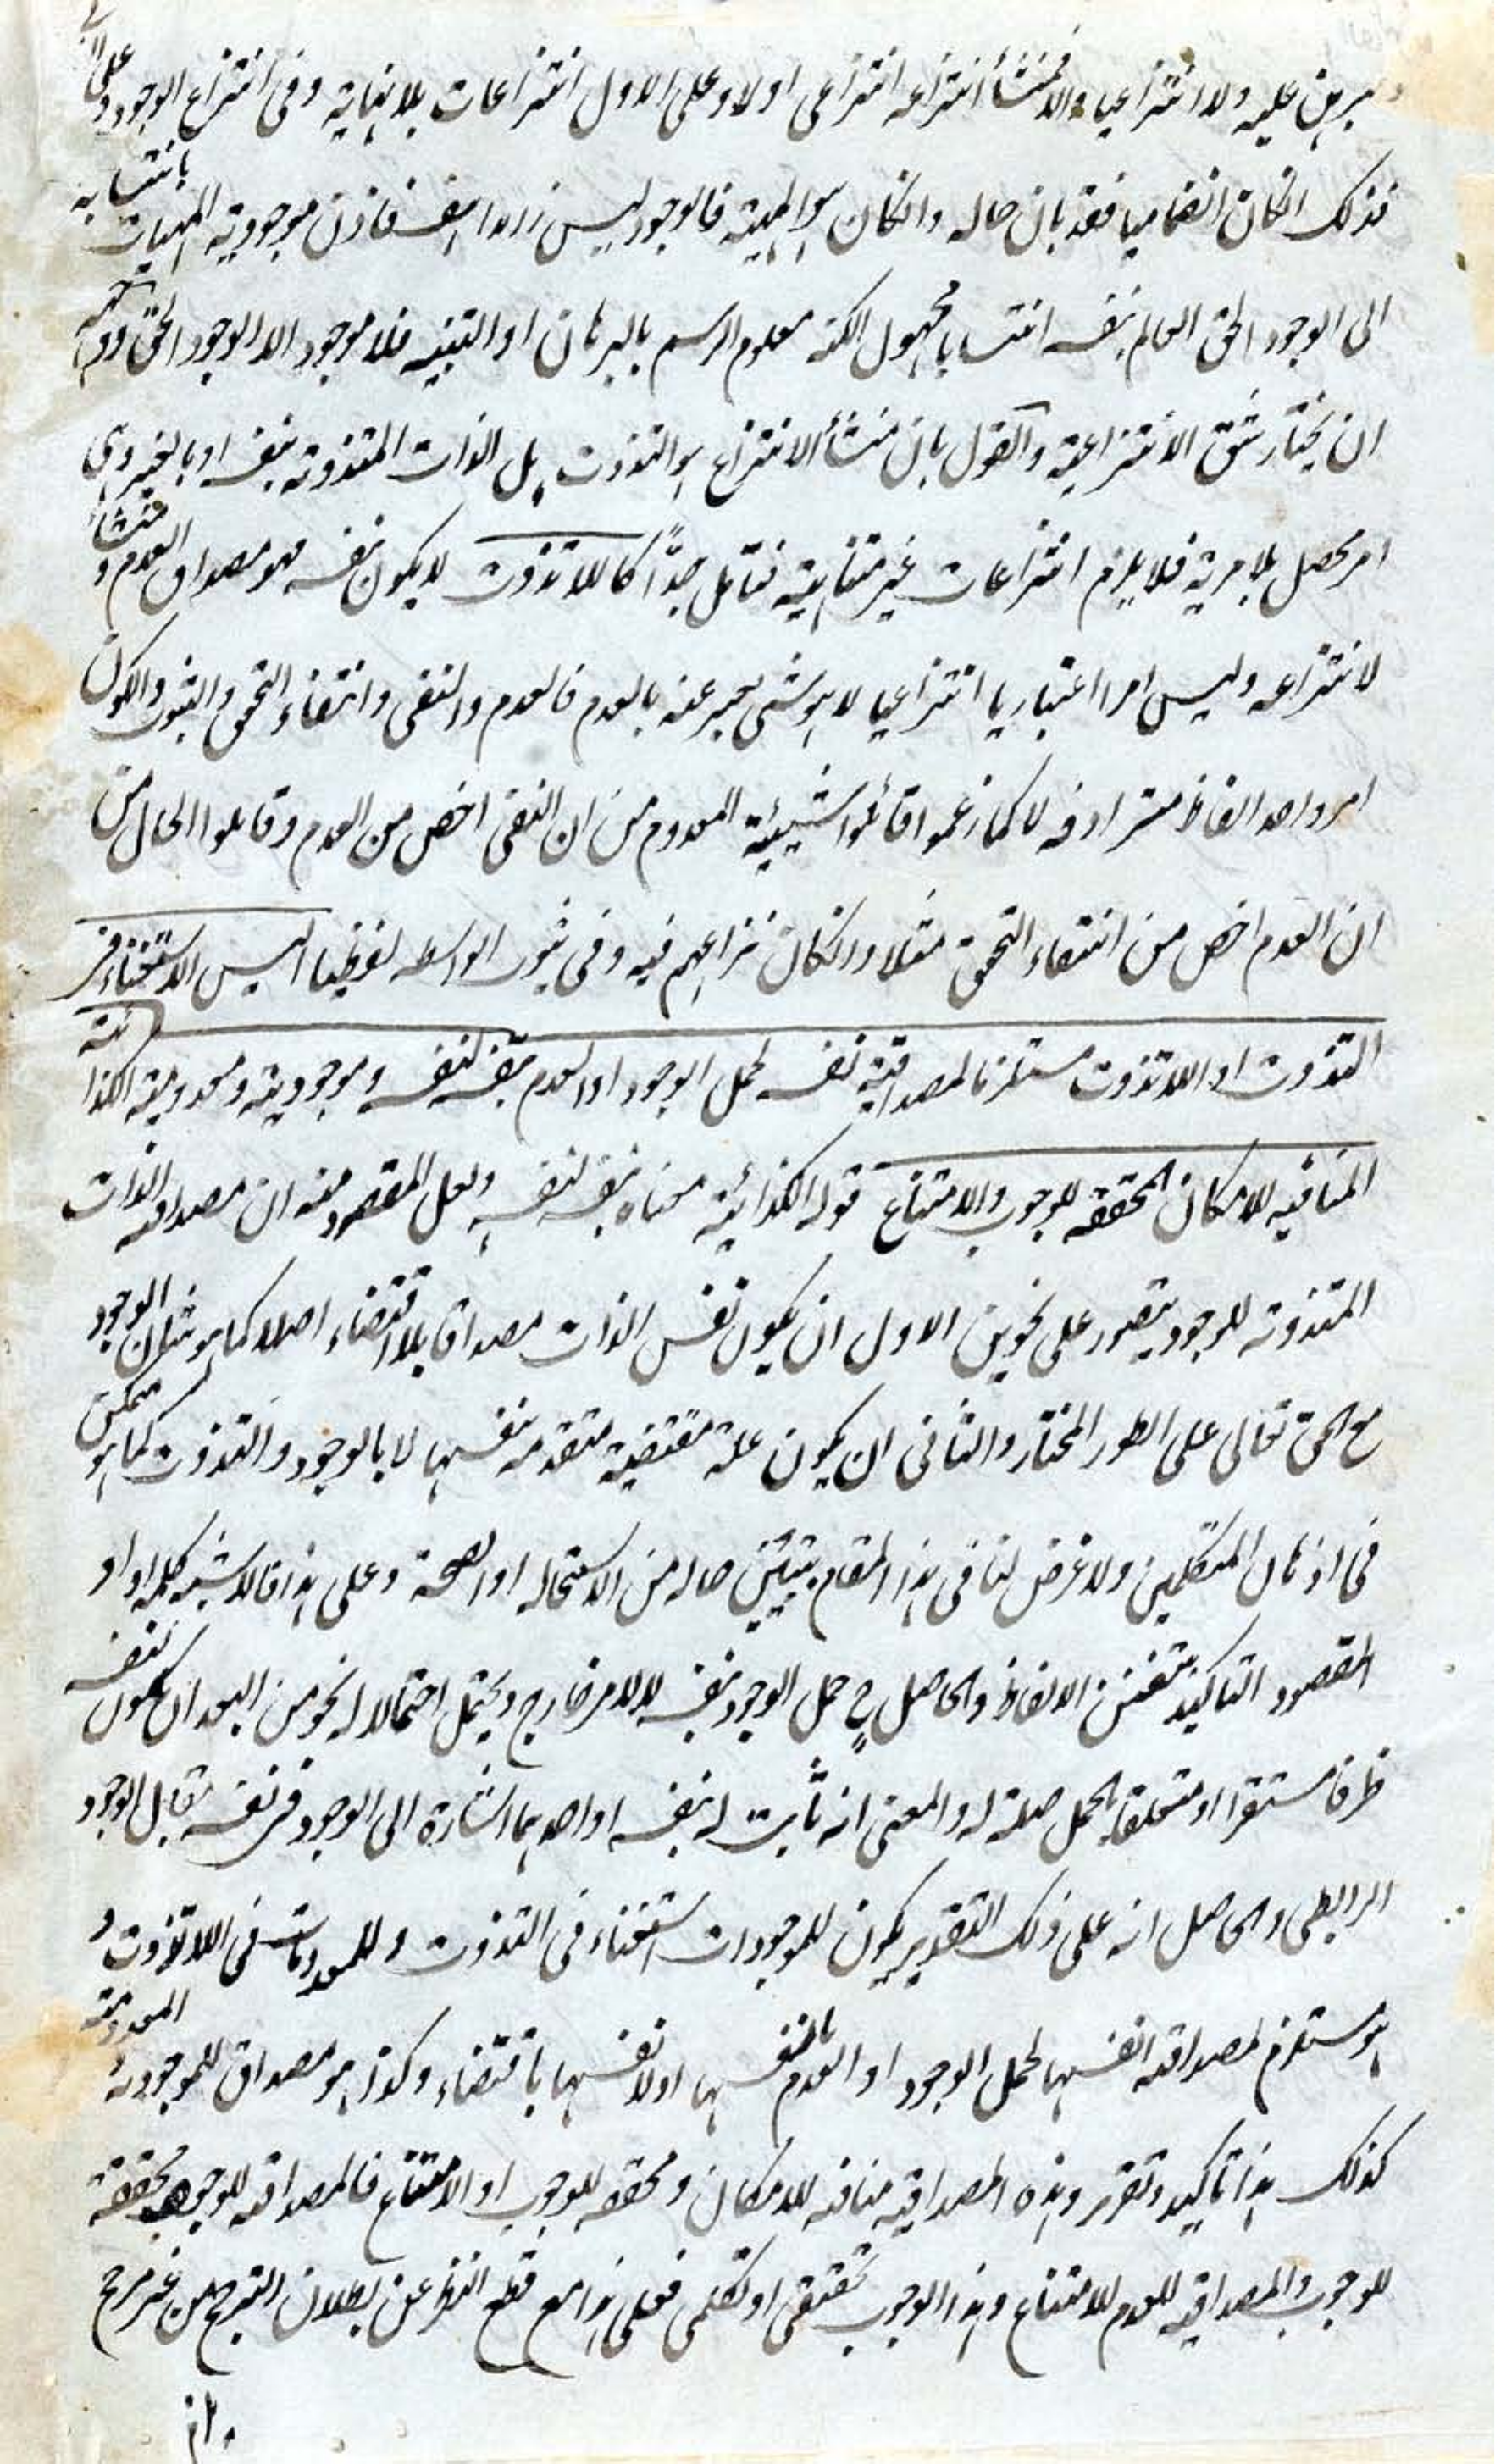 يبرهن عليه ولا انتزاعيا والا فمنشأ انتزاعه انتزاعى اولا وعلى الاول انتزاعات بلا نهاية وفى انتزاع الوجود وعلى الثانى
فذلك انكان انضماميا فقد بان حاله وانكان هو المهية فالوجود ليس زائدا هف فاذن موجودية المهيات بانتسابه
الى الوجود الحق القائم بنفسه انتسابا مجهول الكنه معلوم الرسم بالبرهان او التنبيه فلا موجود الا الوجود الحق
ان يختار شق الانتزاعية والقول بان منشأ الانتزاع هو التذوت بل الذات المتذوتة بنفسه او بالغير وهى
امر محصل بلا مرية فلا يلزم انتزاعات غير متناهية فتأمل جدًّا كاللاتذوت لا يكون نفسه فهو مصداق العدم ومنشأ
لانتزاعه وليس امرا اعتباريا انتزاعيا لا هو شئ يعبر عنه بالعدم فالعدم والنفى وانتفاء التحقق والثبوت والكون
امر واحد الفاظ مترادفه لا كما زعموا قائلوا شيئية المعدوم من ان النفى اخص من العدم وقائلوا الحال من
ان العدم اخص من انتفاء التحقق مثلا وانكان نزاعهم فيه وفى ثبوت الواسطه لفظيا اليس الاستغناء فى
التذوت او اللاتذوت مستلزما لمصداقية نفسه لحمل الوجود او العدم بنفسه لنفسه وموجوديته ومعدوميته الكذائية
المنافيه للامكان المحققه للوجوب والامتناع قوله الكذائية معناه بنفسه لنفسه ولعل المقصود منه ان مصداقيه الذات
المتذوته للوجود يتصور على نحوين الاول ان يكون نفس الذات مصداقا بلا اقتضاء اصلا كما هو شأن الوجود
مع الحق تعالى على الطور المختار والثانى ان يكون علة مقتضية متقدمه بنفسها لا بالوجود والتذوت كما هو ممكن
فى اذهان المتكلمين ولا غرض لنا فى هذا المقام بتبيّن حاله من الاستحاله او الصحة وعلى هذا فالاشبه كلمه او او
المقصود التاكيد بتفنن الالفاظ والحاصل ح حمل الوجود بنفسه لا لامر خارج ويحتمل احتمالا له نحو من البعد ان يكون لنفسه
ظرفا مستقرا او متعلقا بالحمل صلة له والمعنى انه ثابت له بنفسه او احدهما اشارة الى الوجود فى نفسه مقابل الوجود
الرابطى والحاصل انه على ذلك التقدير يكون للموجودات استغناء فى التذوت وللمعدومات فى اللاتذوت و
هو مستلزم لمصداقيه انفسها لحمل الوجود او العدم بانفسها او لانفسها باقتضاء وكذا هو مصداق للموجودية المعدومية
كذلك هذا تاكيد وتقرير وهذه المصداقيه منافيه للامكان ومحققه للوجوب او الامتناع فالمصداقيه للوجود محققة
للوجوب والمصداقيه للعدم للامتناع وهذا الوجوب تحقيقى او تكلمى فعلى هذا مع قطع النظر عن بطلان الترجح من غير مرجح